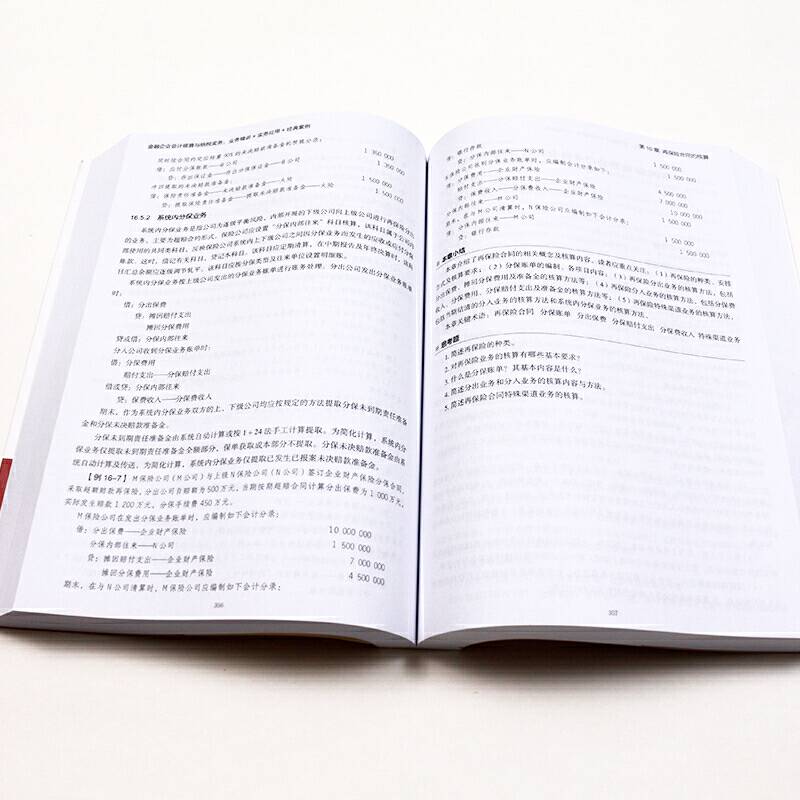 金融企业会计核算与纳税实务：业务精讲+实务应用+经典案例
1 350 000
借：应付分保账款——B公司
1 350 000
贷：存出保证金——存出分保保证金——B公司
冲回提取的未决赔款准备金：
1 500 000
借：保险责任准备金——未决赔款准备金——火险
1 500 000
贷：提取保险责任准备金——提取未决赔款准备金——火险
16.5.2 系统内分保业务
系统内分保业务是指公司为逐级平衡风险，内部开展的下级公司向上级公司进行再保险分出
的业务。主要为超赔合约形式。保险公司应设置“分保内部往来”科目核算，该科目属于公司内
部使用的共同类科目，反映保险公司系统内上下级公司之间因分保业务而发生的应收或应付分保
账款。这时，借记有关科目，贷记本科目。该科目应定期清算，在中期报告及年终决算时，该科
目汇总余额应逐级调节轧平。该科目应按分保类型及往来单位设置明细账。
系统内分保业务按上级公司发出的分保业务账单进行账务处理。分出公司发出分保业务账单
时：
借：分出保费
贷：摊回赔付支出
摊回分保费用
贷或借：分保内部往来
分入公司收到分保业务账单时：
借：分保费用
赔付支出——分保赔付支出
借或贷：分保内部往来
贷：保费收入——分保费收入
期末，作为系统内分保业务双方的上、下级公司均应按规定的方法提取分保未到期责任准备
金和分保未决赔款准备金。
分保未到期责任准备金由系统自动计算或按1÷24法手工计算提取。为简化计算，系统内分
保业务仅提取未到期责任准备金全额部分，保单获取成本部分不提取。分保未决赔款准备金由系
统自动计算及传送，为简化计算，系统内分保业务仅提取已发生已报案未决赔款准备金。
【例16-7】M保险公司（M公司）与上级N保险公司（N公司）签订企业财产保险分保合同，
采取超赔赔款再保险，分出公司自赔额为500万元，当期按期超赔合同计算分出保费为1 000万元，
实际发生赔款1 200万元，分保手续费450万元。
M保险公司在发出分保业务账单时，应编制如下会计分录：
借：分出保费——企业财产保险 10 000 000
分保内部往来——N公司 1 500 000
贷：摊回赔付支出——企业财产保险 7 000 000
摊回分保费用——企业财产保险 4 500 000
期末，在与N公司清算时，M保险公司应编制如下会计分录：
356
第16章 再保险合同的核算
借：银行存款 1 500 000
贷：分保内部往来——N公司 1 500 000
N保险公司收到分保业务账单时，应编制如下会计分录：
借：分保费用——企业财产保险 4 500 000
赔付支出——分保赔付支出——企业财产保险 7 000 000
贷：保费收入——分保费收入——企业财产保险 10 000 000
分保内部往来——M公司 1 500 000
期末，在与M公司清算时，N保险公司应编制如下会计分录：
借：分保内部往来——M公司 1 500 000
贷：银行存款 1 500 000
本章小结
本章介绍了再保险合同的相关概念及核算内容。读者应重点关注：（1）再保险的种类、安排
方式及核算要求；（2）分保账单的编制、各项目内容；（3）再保险分出业务的核算方法，包括
分出保费、摊回分保费用及准备金的核算方法等；（4）再保险分入业务的核算方法，包括分保费
收入、分保费用、分保赔付支出及准备金的核算方法等；（5）再保险特殊渠道业务的核算方法，
包括当期结清的分入业务的核算方法和系统内分保业务的核算方法。
本章关键术语：再保险合同 分保账单 分出保费 分保赔付支出 分保费收入 特殊渠道业务
思考题
1. 简述再保险的种类。
2. 对再保险业务的核算有哪些基本要求？
3. 什么是分保账单？其基本内容是什么？
4. 简述分出业务和分入业务的核算内容与方法。
5. 简述再保险合同特殊渠道业务的核算。
357